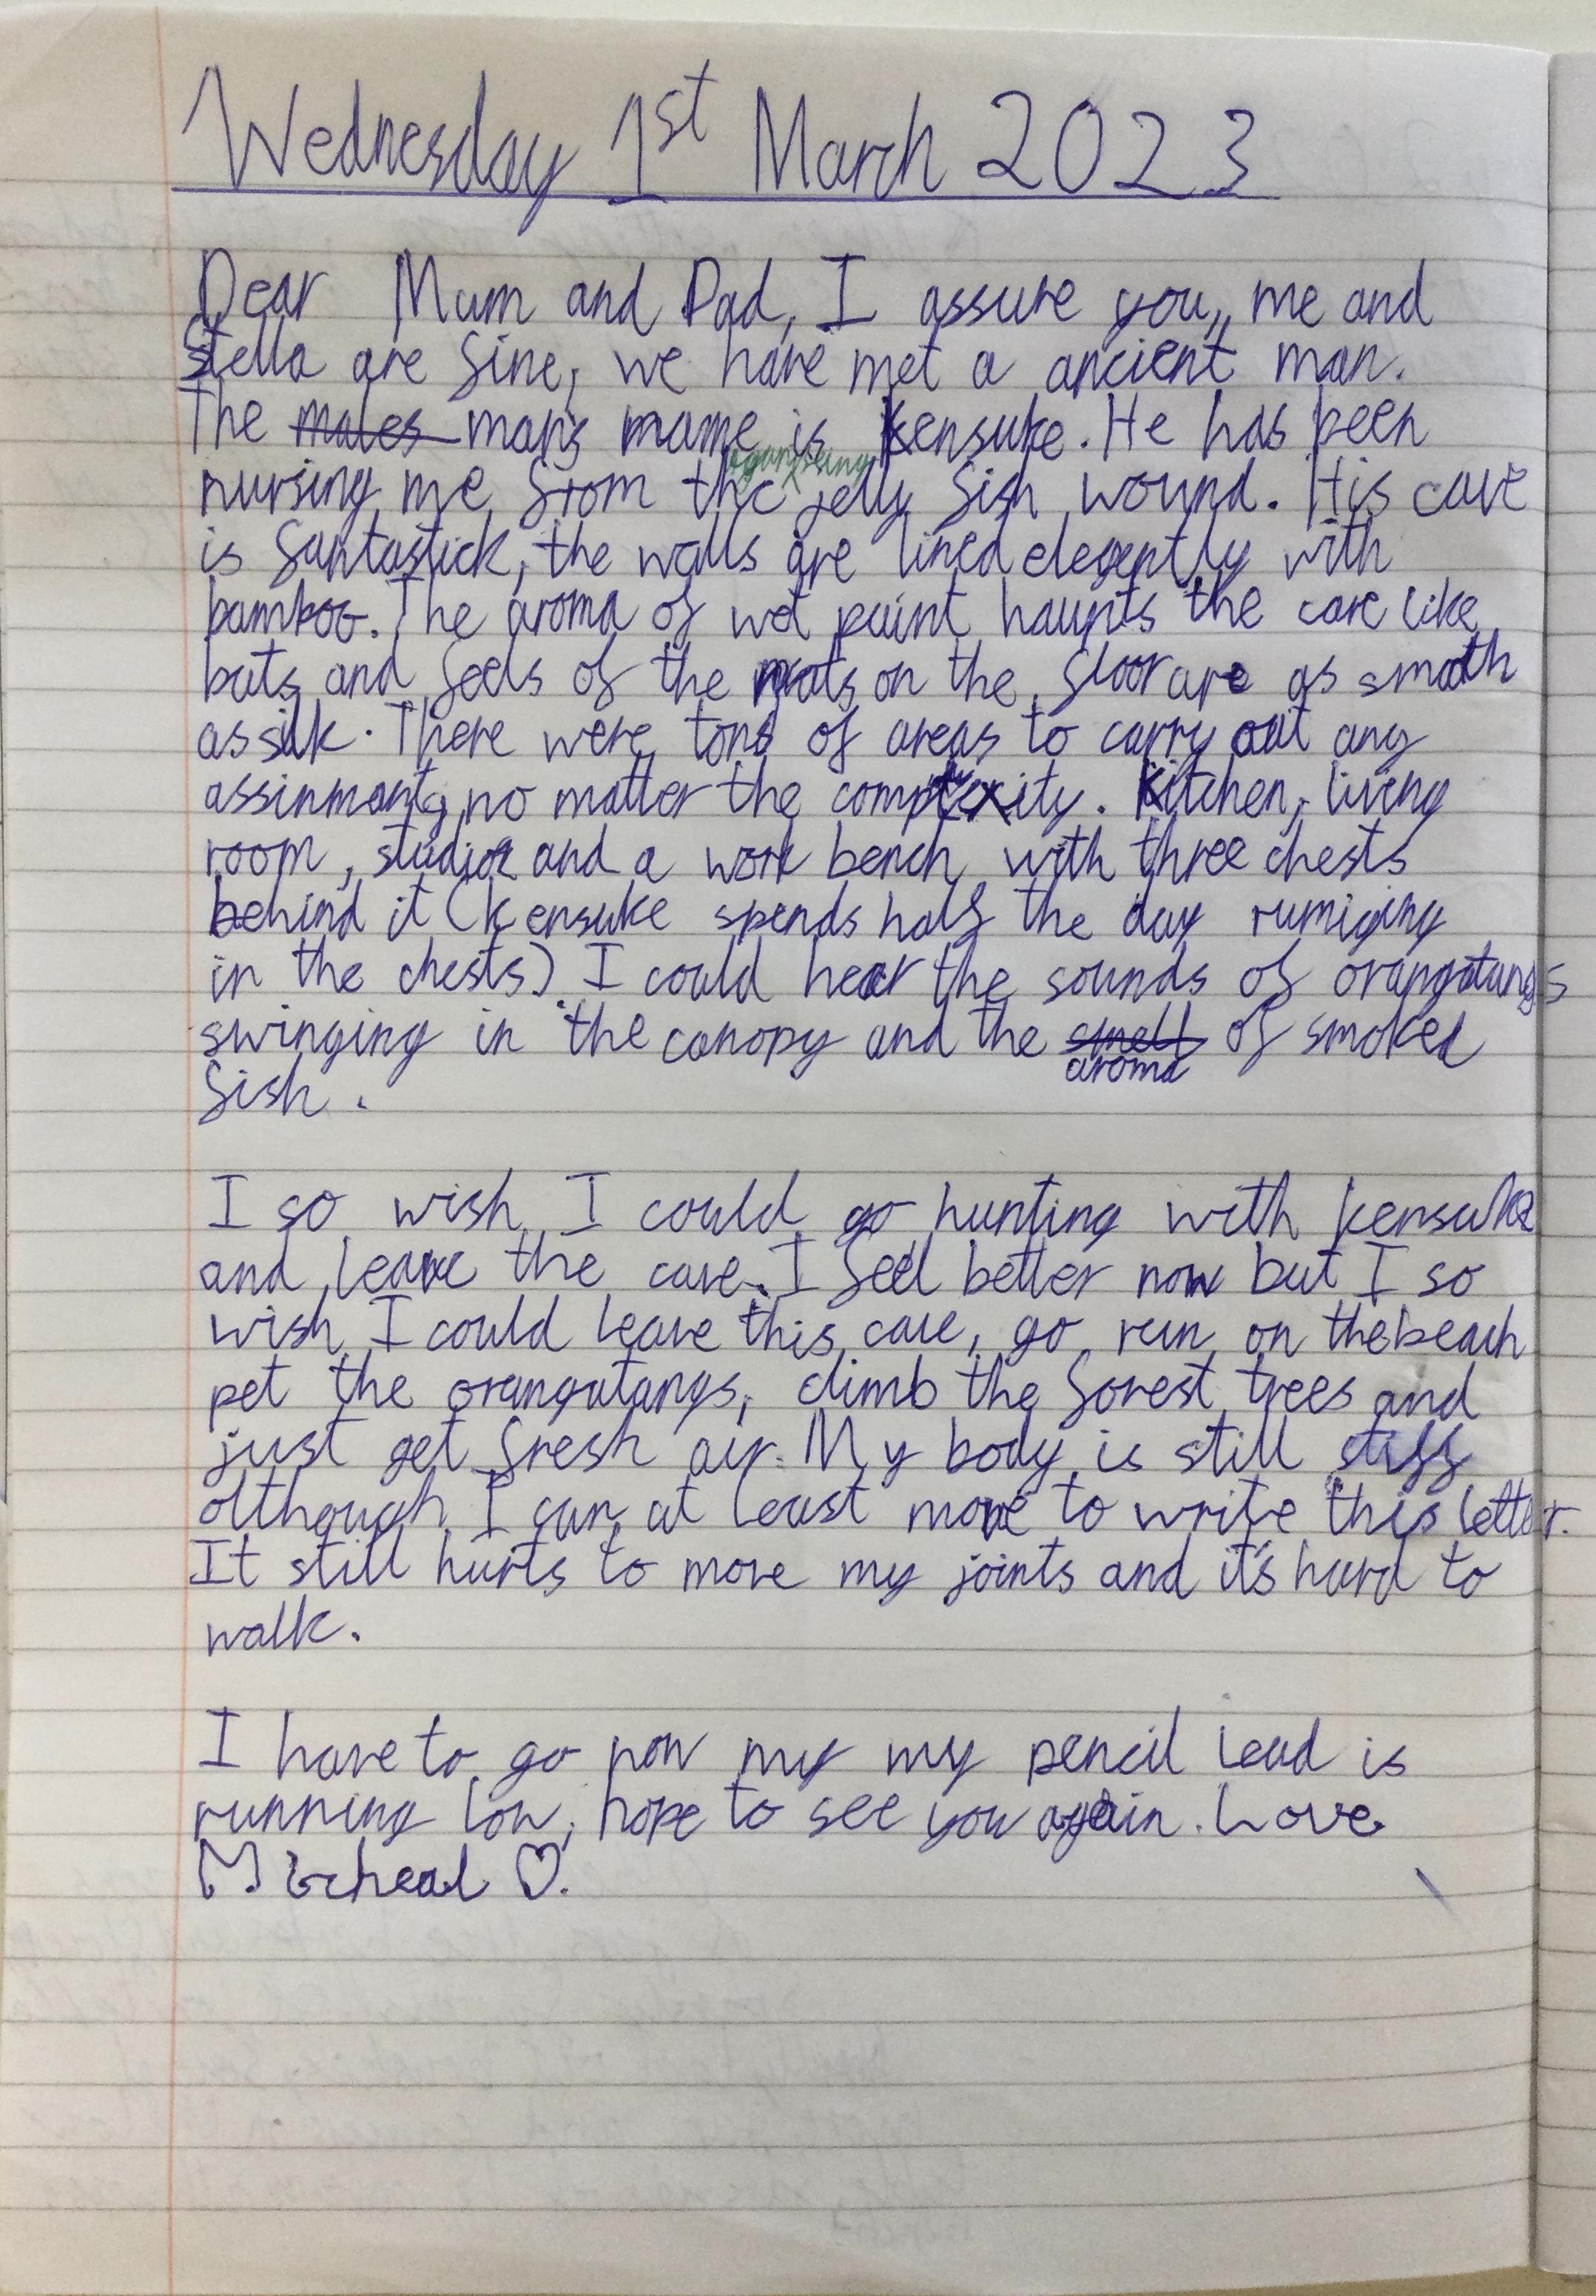 Wednesday 1st March 2023
Dear Mum and Dad, I assure you, me and
Stella are fine, we have met a ancient man.
The males man's name is Kensuke. He has been
nursing me from the jelly fish wound. His cave
is fantastick, the walls are lined elegently with
bamboo. The aroma of wet paint haunts the cave like
bats and feels of the mats on the floor are as smoth
as silk. There were tons of areas to carry out any
assinments, no matter the complexity. Kitchen, living
room, studio and a work bench with three chests
behind it (Kensuke spends half the day rumiging
in the chests). I could hear the sounds of orangutangs
swinging in the canopy and the smell of smoked
aroma
fish.
I so wish I could go hunting with Kensuke
and leave the cave. I feel better now but I so
wish I could leave this cave, go run on the beach
pet the orangutangs, climb the forest trees and
just get fresh air. My body is still stiff
although I can at least move to write this letter.
It still hurts to move my joints and it's hard to
walk.
I have to go now my my pencil lead is
running low, hope to see you again. Love
Micheal ♡.